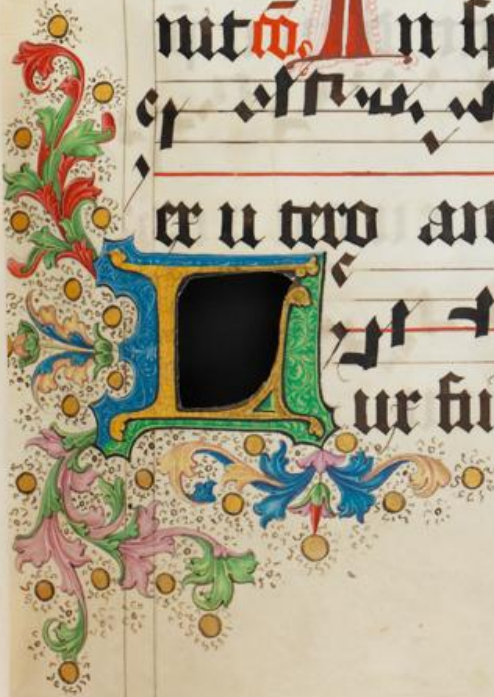 nit cō. In sp
ex u tero an
Lux ful